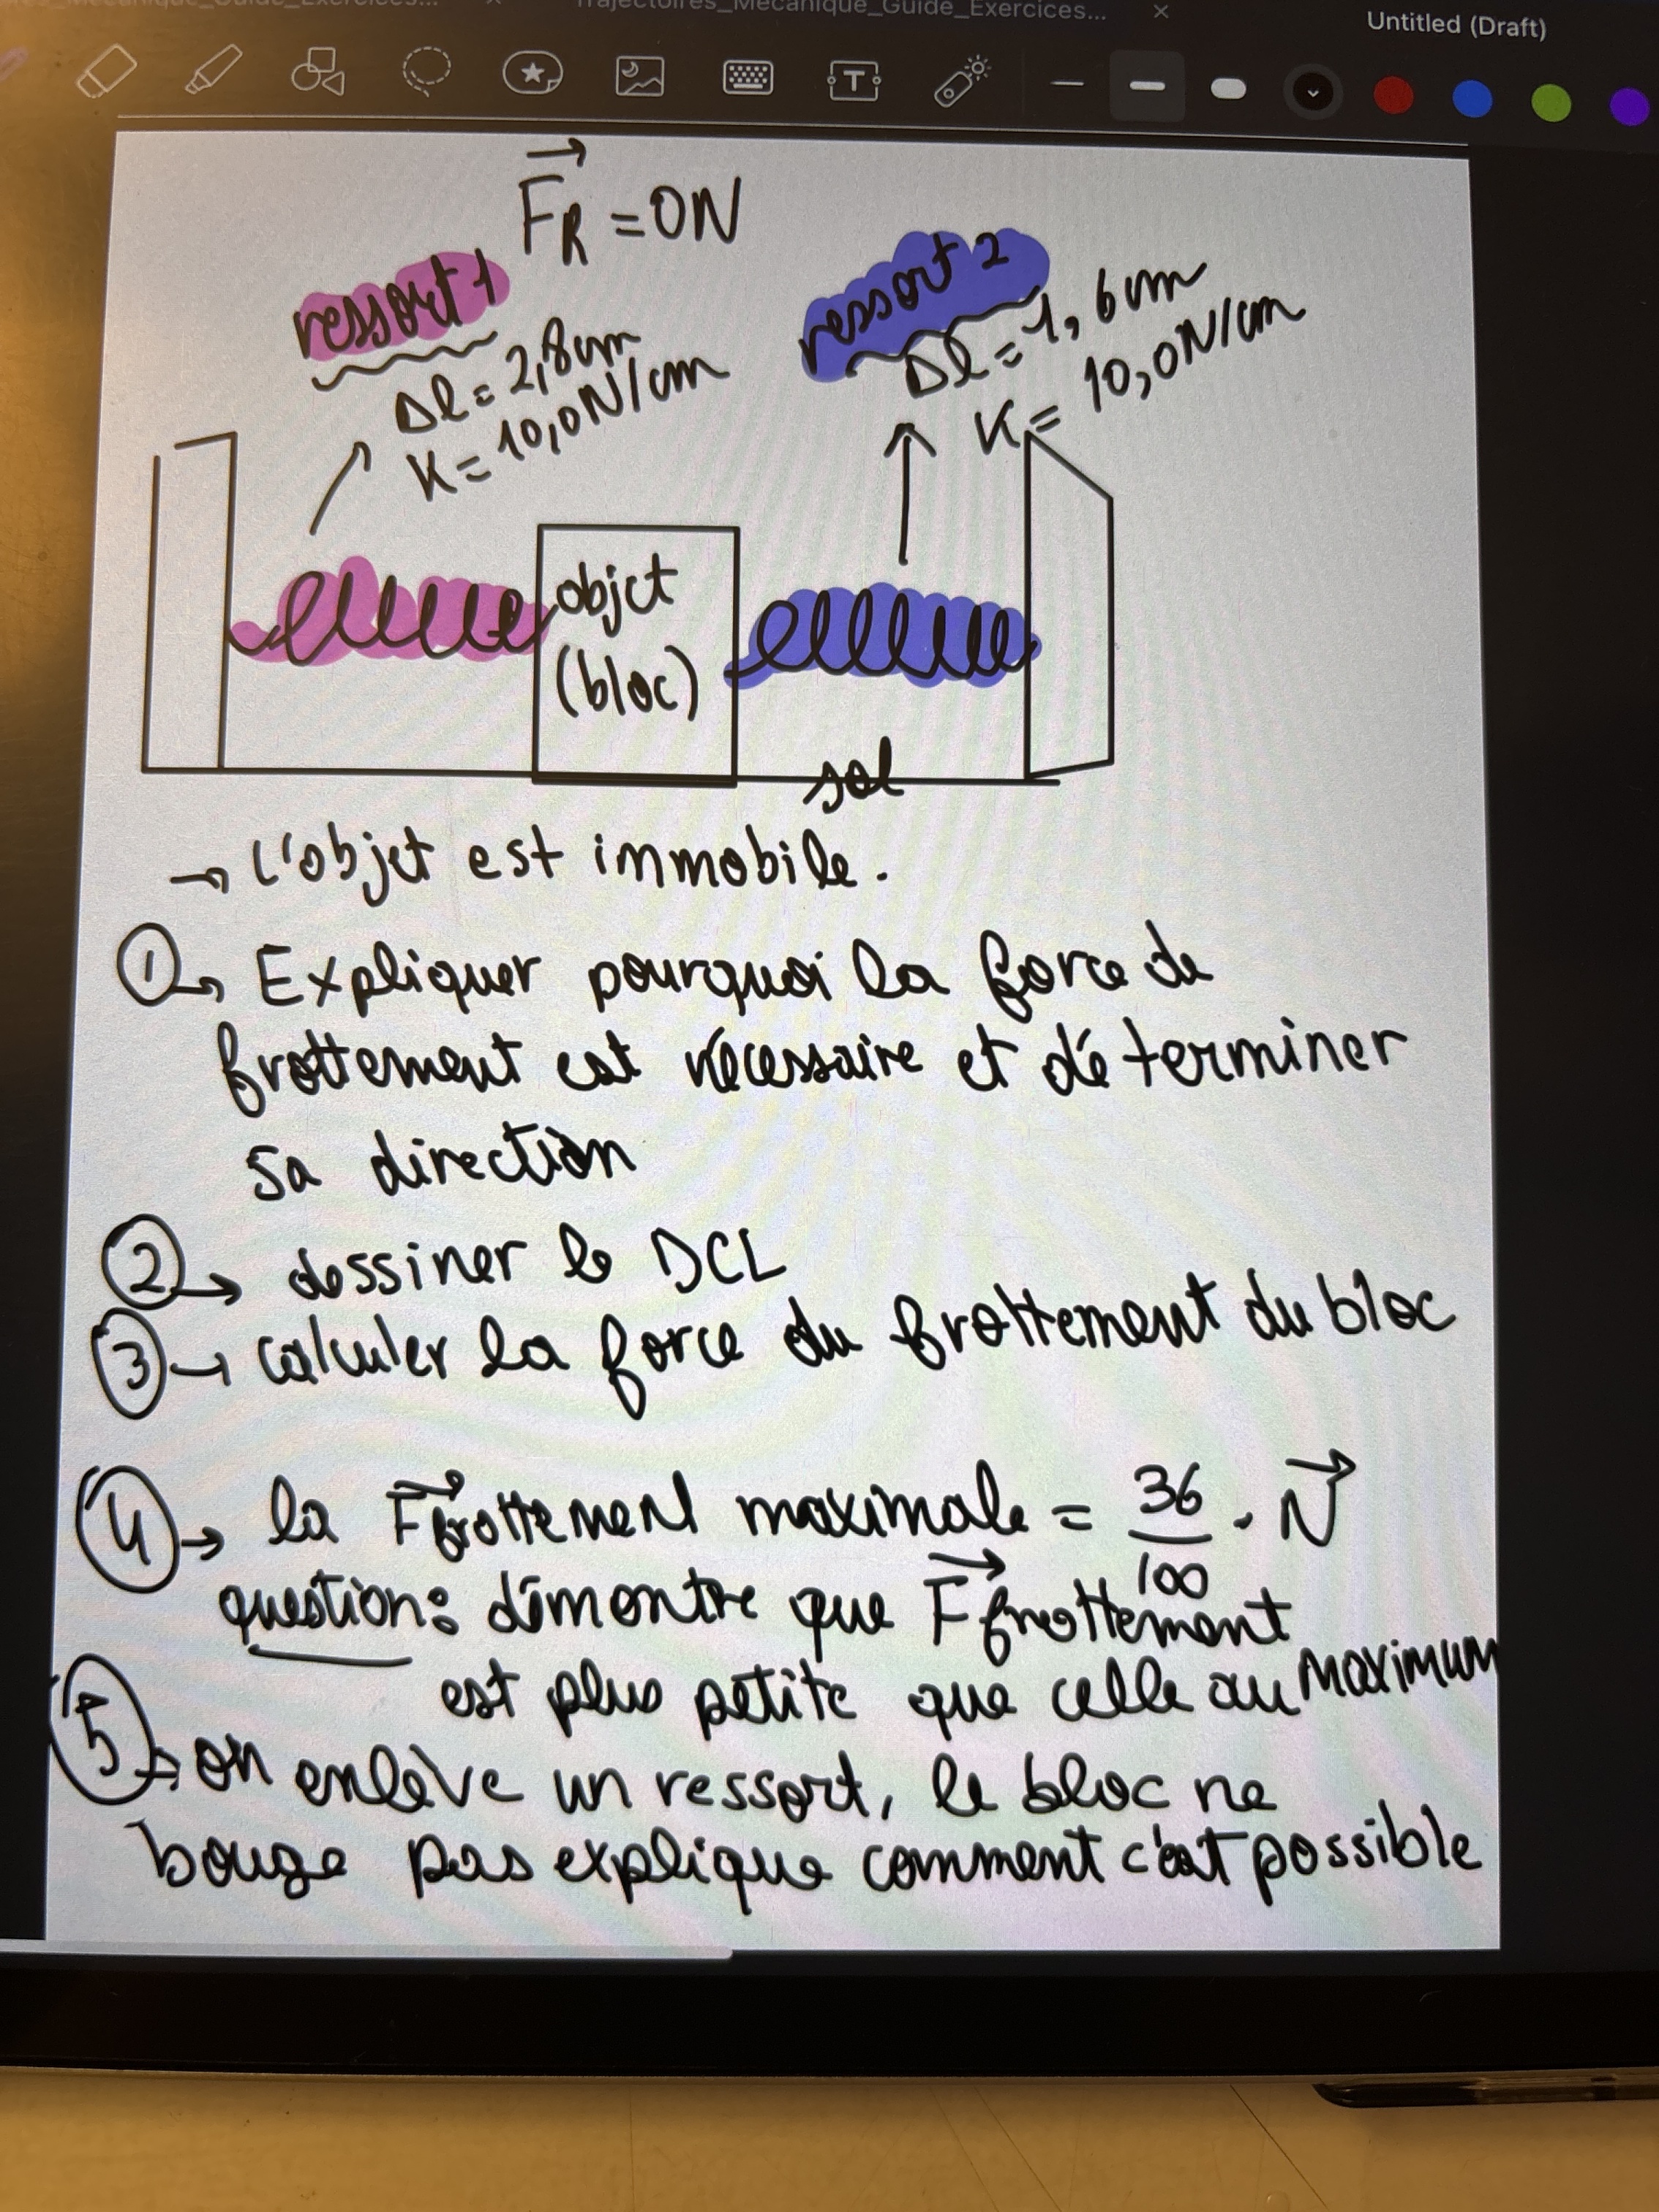 Trajectoires_Mecanique_Guide_Exercices...
Untitled (Draft)
F_R = 0N
ressort 1
Δl = 2,8cm
K = 10,0N/cm
ressort 2
Δl = 1,6cm
K = 10,0N/cm
objet
(bloc)
sol
→ l'objet est immobile.
① → Expliquer pourquoi la force de
frottement est nécessaire et déterminer
sa direction
② → dessiner le DCL
③ → calculer la force du frottement du bloc
④ → la F frottement maximale = 36/100 · N
question: démontre que F frottement
est plus petite que celle au maximum
⑤ → on enlève un ressort, le bloc ne
bouge pas explique comment c'est possible